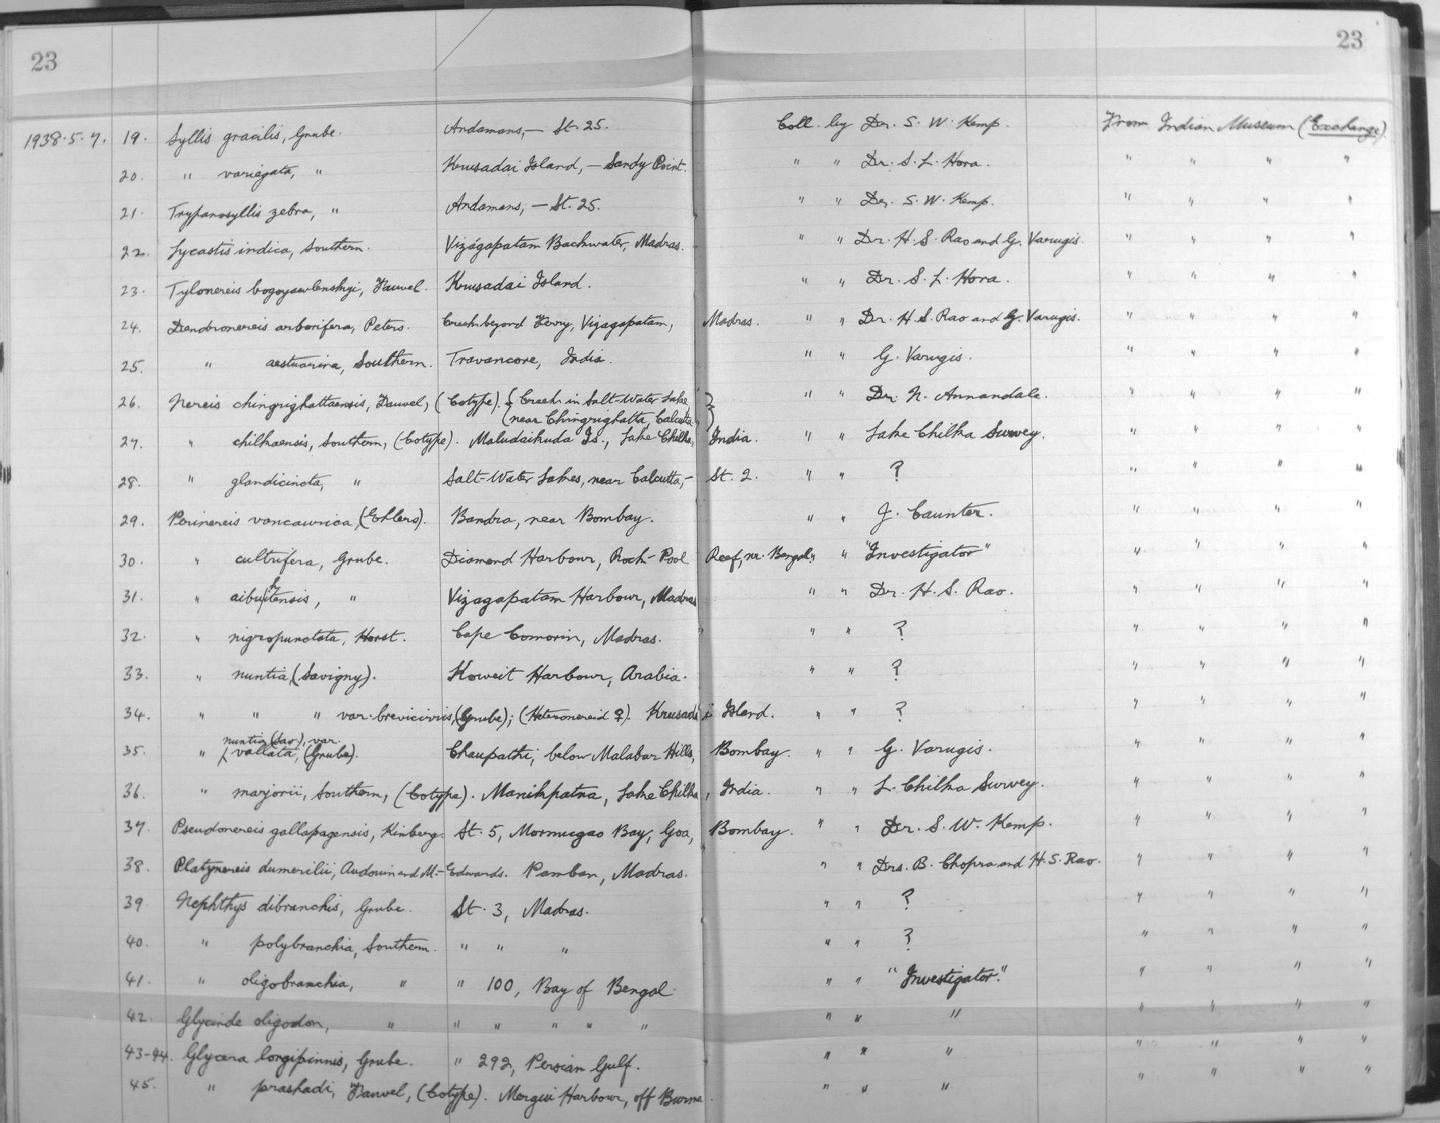 23 23
1938.5.7. 19. Syllis gracilis, Grube. Andamans,— St. 25. Coll. by Dr. S. W. Kemp. From Indian Museum (Exchange)
20. " variegata, " Krusadai Island, — Sandy Point. " " Dr. S. L. Hora. " " " "
21. Trypanosyllis zebra, " Andamans, — St. 25. " " Dr. S. W. Kemp. " " " "
22. Lycastis indica, Southern. Vizagapatam Backwater, Madras. " " Dr. H. S. Rao and G. Varugis. " " " "
23. Tylonereis bogoyawlenskyi, Fauvel. Krusadai Island. " " Dr. S. L. Hora. " " " "
24. Dendronereis arborifera, Peters. Creek beyond Ferry, Vizagapatam, Madras. " " Dr. H. S. Rao and G. Varugis. " " " "
25. " aestuarina, Southern. Travancore, India. " " G. Varugis. " " " "
26. Nereis chingrighattaensis, Fauvel, (Cotype). { Creek in Salt-Water Lake, } " " Dr. N. Annandale. " " " "
(near Chingrighatta, Calcutta
27. " chilkaensis, Southern, (Cotype). Maludaikuda Is., Lake Chilka, India. " " Lake Chilka Survey. " " " "
28. " glandicincta, " Salt-Water Lakes, near Calcutta,— St. 2. " " ? " " " "
29. Perinereis vancaurica, (Ehlers). Bandra, near Bombay. " " J. Caunter. " " " "
30. " cultrifera, Grube. Diamond Harbour, Rock-Pool Reef, nr. Bengal. " " "Investigator" " " " "
31. " aibuhitensis, " Vizagapatam Harbour, Madras " " Dr. H. S. Rao. " " " "
32. " nigropunctata, Horst. Cape Comorin, Madras. " " ? " " " "
33. " nuntia, (Savigny). Koweit Harbour, Arabia. " " ? " " " "
34. " " " var. brevicirris, (Grube); (Heteronereid ♀). Krusadai Island. " " ? " " " "
nuntia (Sav), var.
35. " vallata, (Grube). Chaupathi, below Malabar Hills, Bombay. " " G. Varugis. " " " "
36. " marjorii, Southern, (Cotype). Manikpatna, Lake Chilka, India. " " L. Chilka Survey. " " " "
37. Pseudonereis gallapagensis, Kinberg. St. 5, Mormugao Bay, Goa, Bombay. " " Dr. S. W. Kemp. " " " "
38. Platynereis dumerilii, Audouin and M.-Edwards. Pamban, Madras. " " Drs. B. Chopra and H. S. Rao. " " " "
39. Nephthys dibranchis, Grube. St. 3, Madras. " " ? " " " "
40. " polybranchia, Southern. " " " " " ? " " " "
41. " oligobranchia, " " 100, Bay of Bengal. " " "Investigator." " " " "
42. Glycinde oligodon, " " " " " " " " " " " " "
43-44. Glycera longipinnis, Grube. " 292, Persian Gulf. " " " " " " "
45. " prashadi, Fauvel, (Cotype). Mergui Harbour, off Burma. " " " " " " "